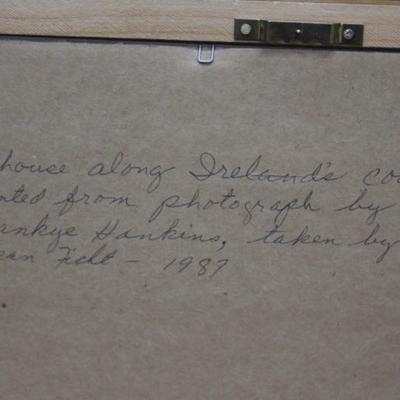 house along Ireland's co
nted from photograph by
ankye Hankins, taken by
ean Ficht - 1987